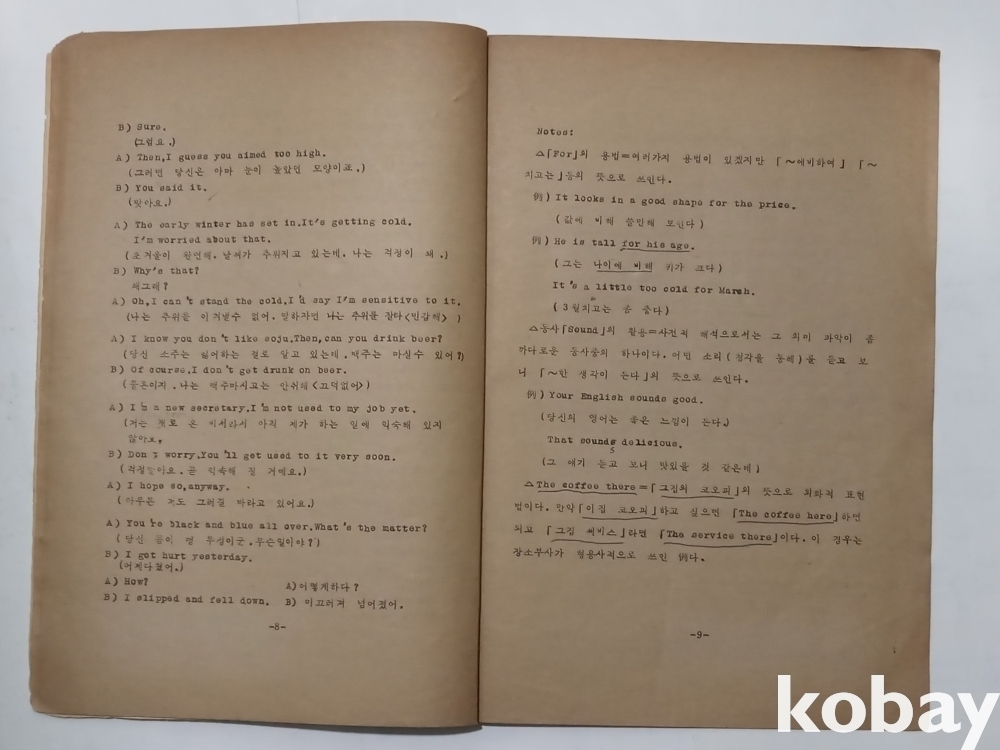 B) Sure.
(그럼요.)
A) Then,I guess you aimed too high.
(그러면 당신은 아마 눈이 높았던 모양이죠.)
B) You said it.
(맞아요.)
A) The early winter has set in.It's getting cold.
I'm worried about that.
(초겨울이 완연해. 날씨가 추워지고 있는데. 나는 걱정이 돼.)
B) Why's that?
왜그래?
A) Oh,I can't stand the cold.I'd say I'm sensitive to it.
(나는 추위를 이겨낼수 없어. 말하자면 나는 추위를 잘타<민감해> )
A) I know you don't like soju.Then,can you drink beer?
(당신 소주는 싫어하는 걸로 알고 있는데. 맥주는 마실수 있어?)
B) Of course.I don't get drunk on beer.
(물론이지. 나는 맥주마시고는 안취해<끄덕없어>)
A) I'm a new secretary.I'm not used to my job yet.
(저는 새로 온 비서라서 아직 제가 하는 일에 익숙해 있지
않아요.
B) Don't worry.You'll get used to it very soon.
(걱정말아요. 곧 익숙해 질 거예요.)
A) I hope so,anyway.
(아무튼 저도 그러길 바라고 있어요.)
A) You're black and blue all over.What's the matter?
(당신 몸이 멍 투성이군. 무슨일이야?)
B) I got hurt yesterday.
(어제다쳤어.)
A) How? A)어떻게하다?
B) I slipped and fell down. B) 미끄러져 넘어졌어.
-8-
Notes:
△「For」의 용법=여러가지 용법이 있겠지만 「~에비하여」 「~
치고는」등의 뜻으로 쓰인다.
例) It looks in a good shape for the price.
(값에 비해 쓸만해 보인다)
例) He is tall for his age.
(그는 나이에 비해 키가 크다)
It's a little too cold for March.
(3월치고는 좀 춥다)
△동사「Sound」의 활용=사전적 해석으로서는 그 의미 파악이 좀
까다로운 동사중의 하나이다. 어떤 소리(청각을 통해)을 듣고 보
니 「~한 생각이 든다」의 뜻으로 쓰인다.
例) Your English sounds good.
(당신의 영어는 좋은 느낌이 든다.)
That sounds delicious.
(그 얘기 듣고 보니 맛있을 것 같은데)
△The coffee there=「그집의 코오피」의 뜻으로 회화적 표현
법이다. 만약「이집 코오피」하고 싶으면 「The coffee here」하면
되고 「그집 써비스」라면 「The service there」이다. 이 경우는
장소부사가 형용사적으로 쓰인 例다.
-9-
kobay